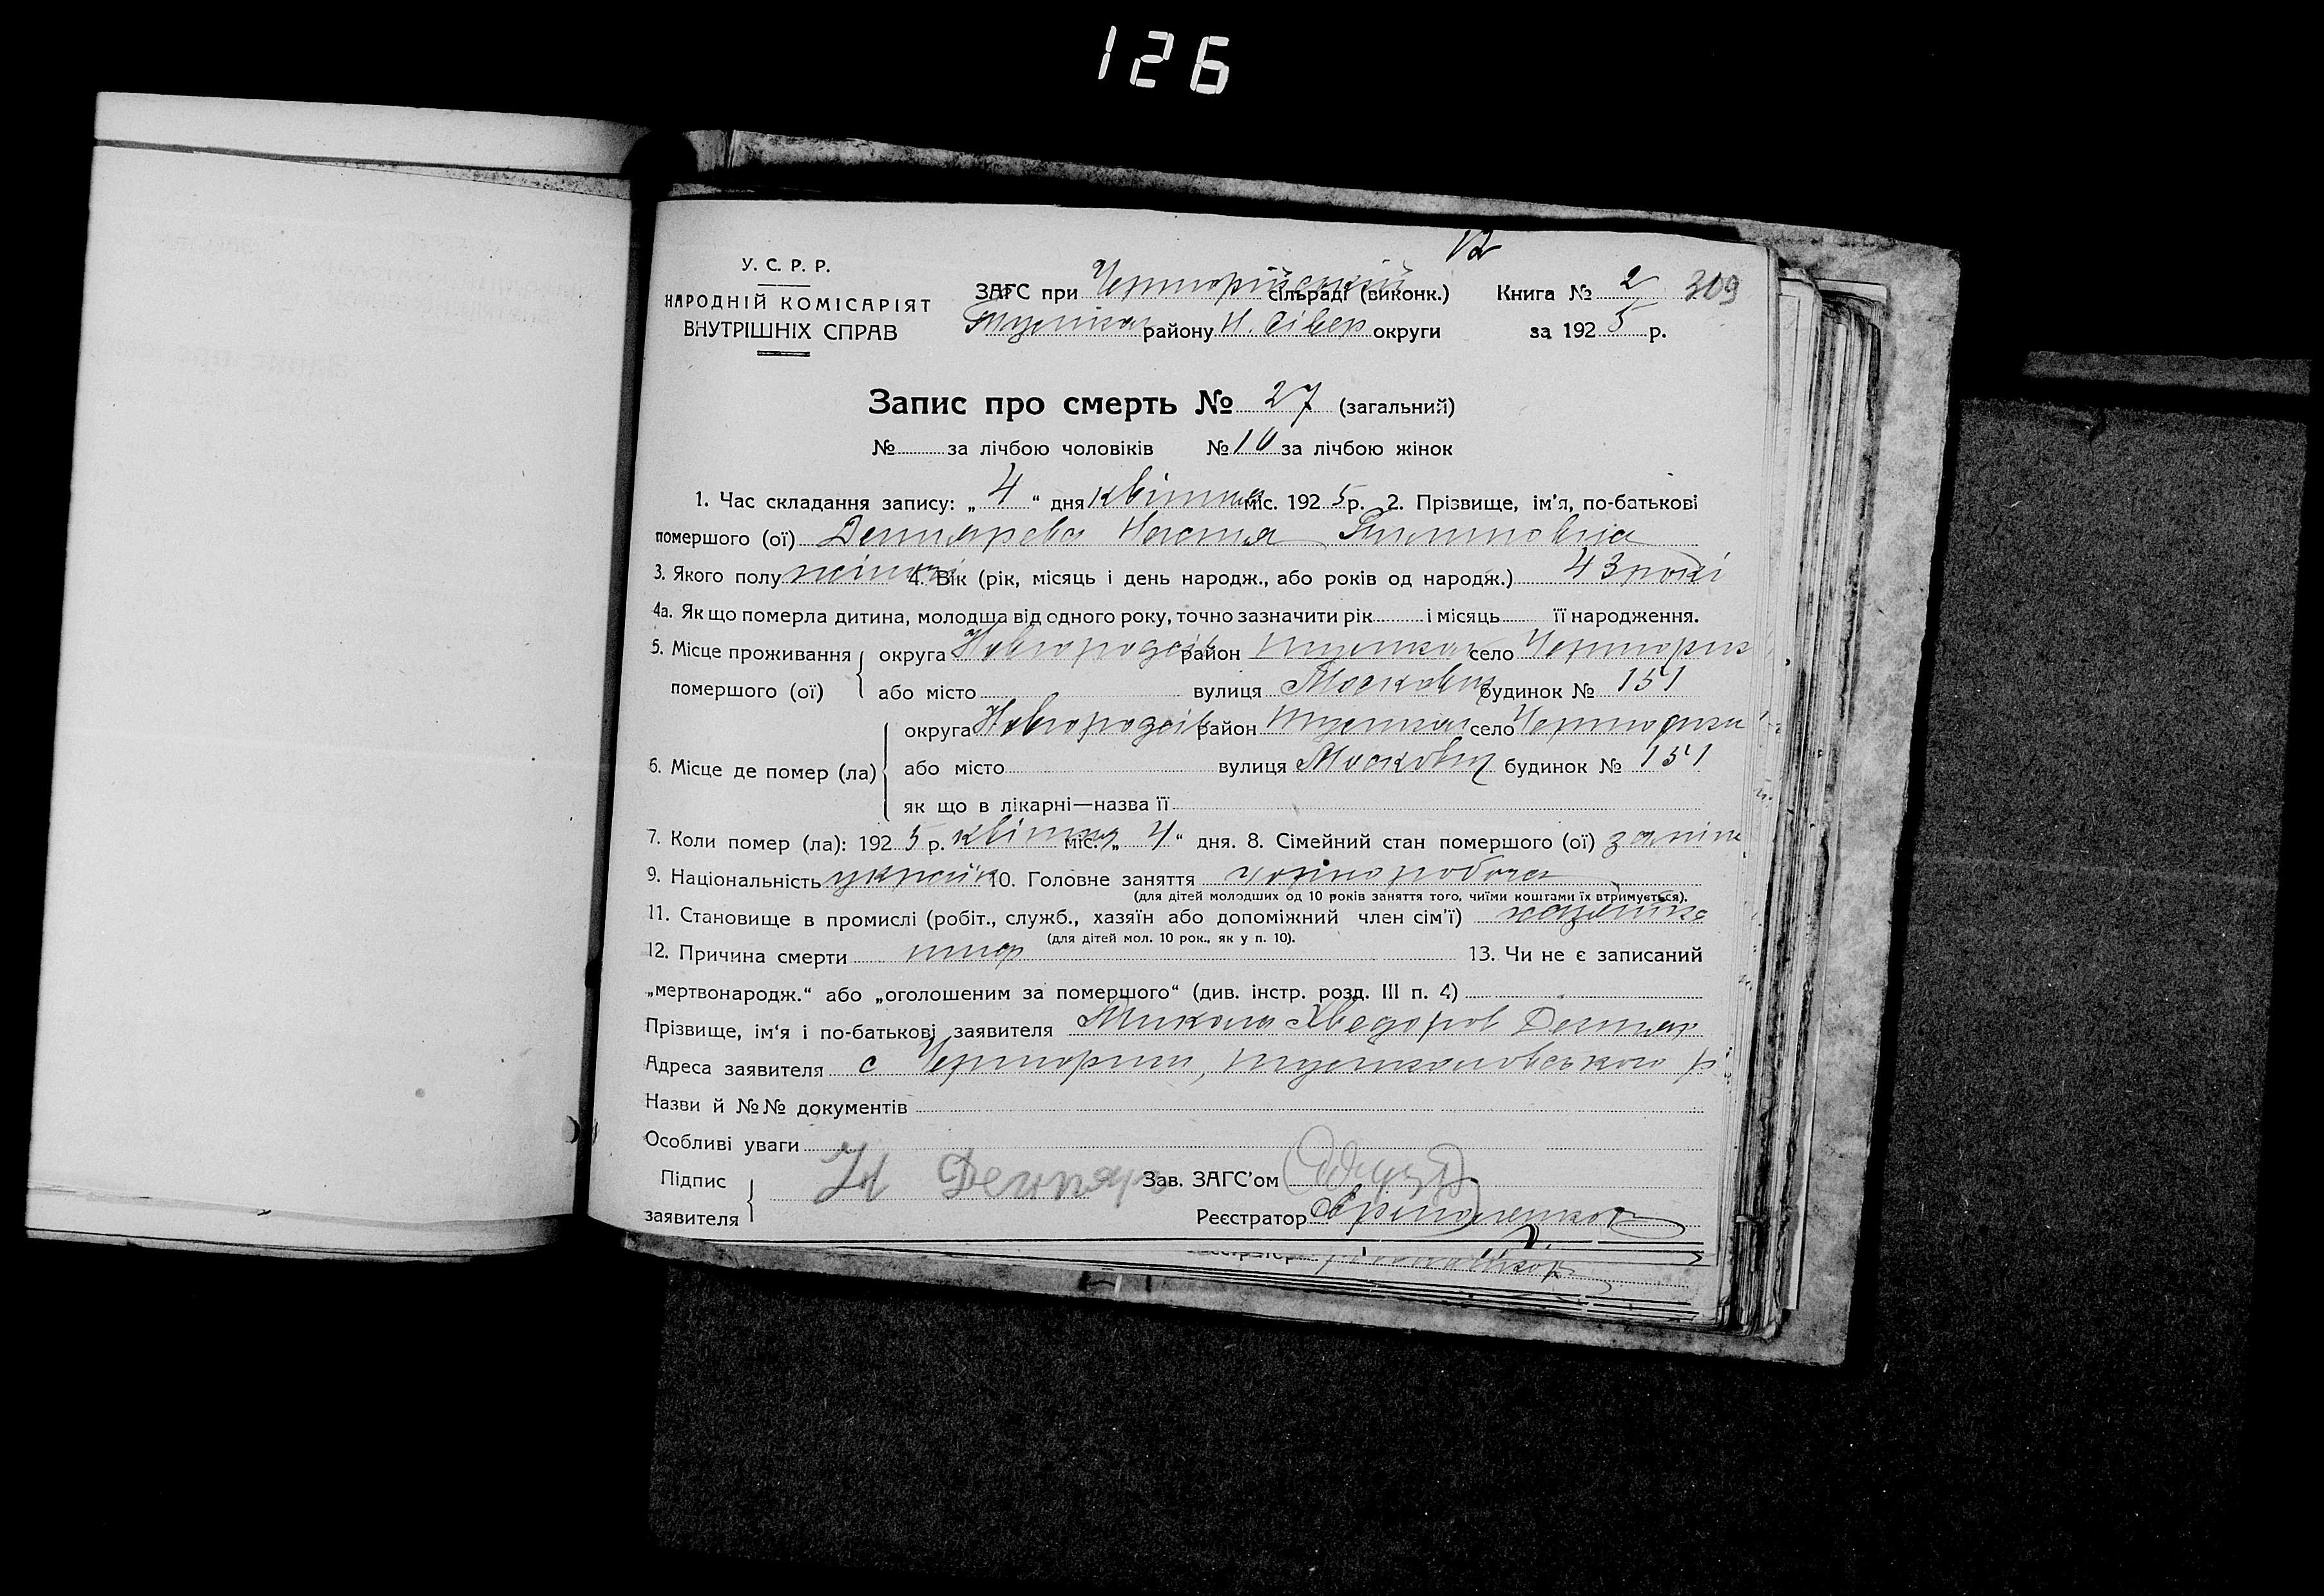 126
12
У. С. Р. Р.
НАРОДНІЙ КОМІСАРІЯТ
ВНУТРІШНІХ СПРАВ
ЗАГС при Чорторійській сільраді (виконк.) Книга № 2 309
району Н. Сівер округи за 1925 р.
Запис про смерть № 27 (загальний)
№ за лічбою чоловіків № 10 за лічбою жінок
1. Час складання запису: „ 4 “ дня квітня міс. 1925 р. 2. Прізвище, ім'я, по-батькові
помершого (ої) Дегтярева Настя
3. Якого полу жіноч 4. Вік (рік, місяць і день народж., або років од народж.) 43 років
4а. Як що померла дитина, молодща від одного року, точно зазначити рік і місяць її народження.
5. Місце проживання округа Новгородсів район село
помершого (ої) або місто вулиця Московка будинок № 151
округа Новгородсів район село
6. Місце де помер (ла) або місто вулиця будинок № 151
як що в лікарні—назва її
7. Коли помер (ла): 1925 р. квітня міс. „ 4 “ дня. 8. Сімейний стан помершого (ої) заміж
9. Національність україн 10. Головне заняття чорноробоча
(для дітей молодших од 10 років заняття того, чиїми коштами їх втримується).
11. Становище в промислі (робіт., служб., хазяїн або допоміжний член сім'ї) хазяйка
(для дітей мол. 10 рок., як у п. 10).
12. Причина смерти 13. Чи не є записаний
„мертвонародж.“ або „оголошеним за помершого“ (див. інстр. розд. III п. 4)
Прізвище, ім'я і по-батькові заявителя Микола Хведоров Дегтяр
Адреса заявителя с
Назви й №№ документів
Особливі уваги
Підпис Н Дегтяр Зав. ЗАГС'ом
заявителя Реєстратор